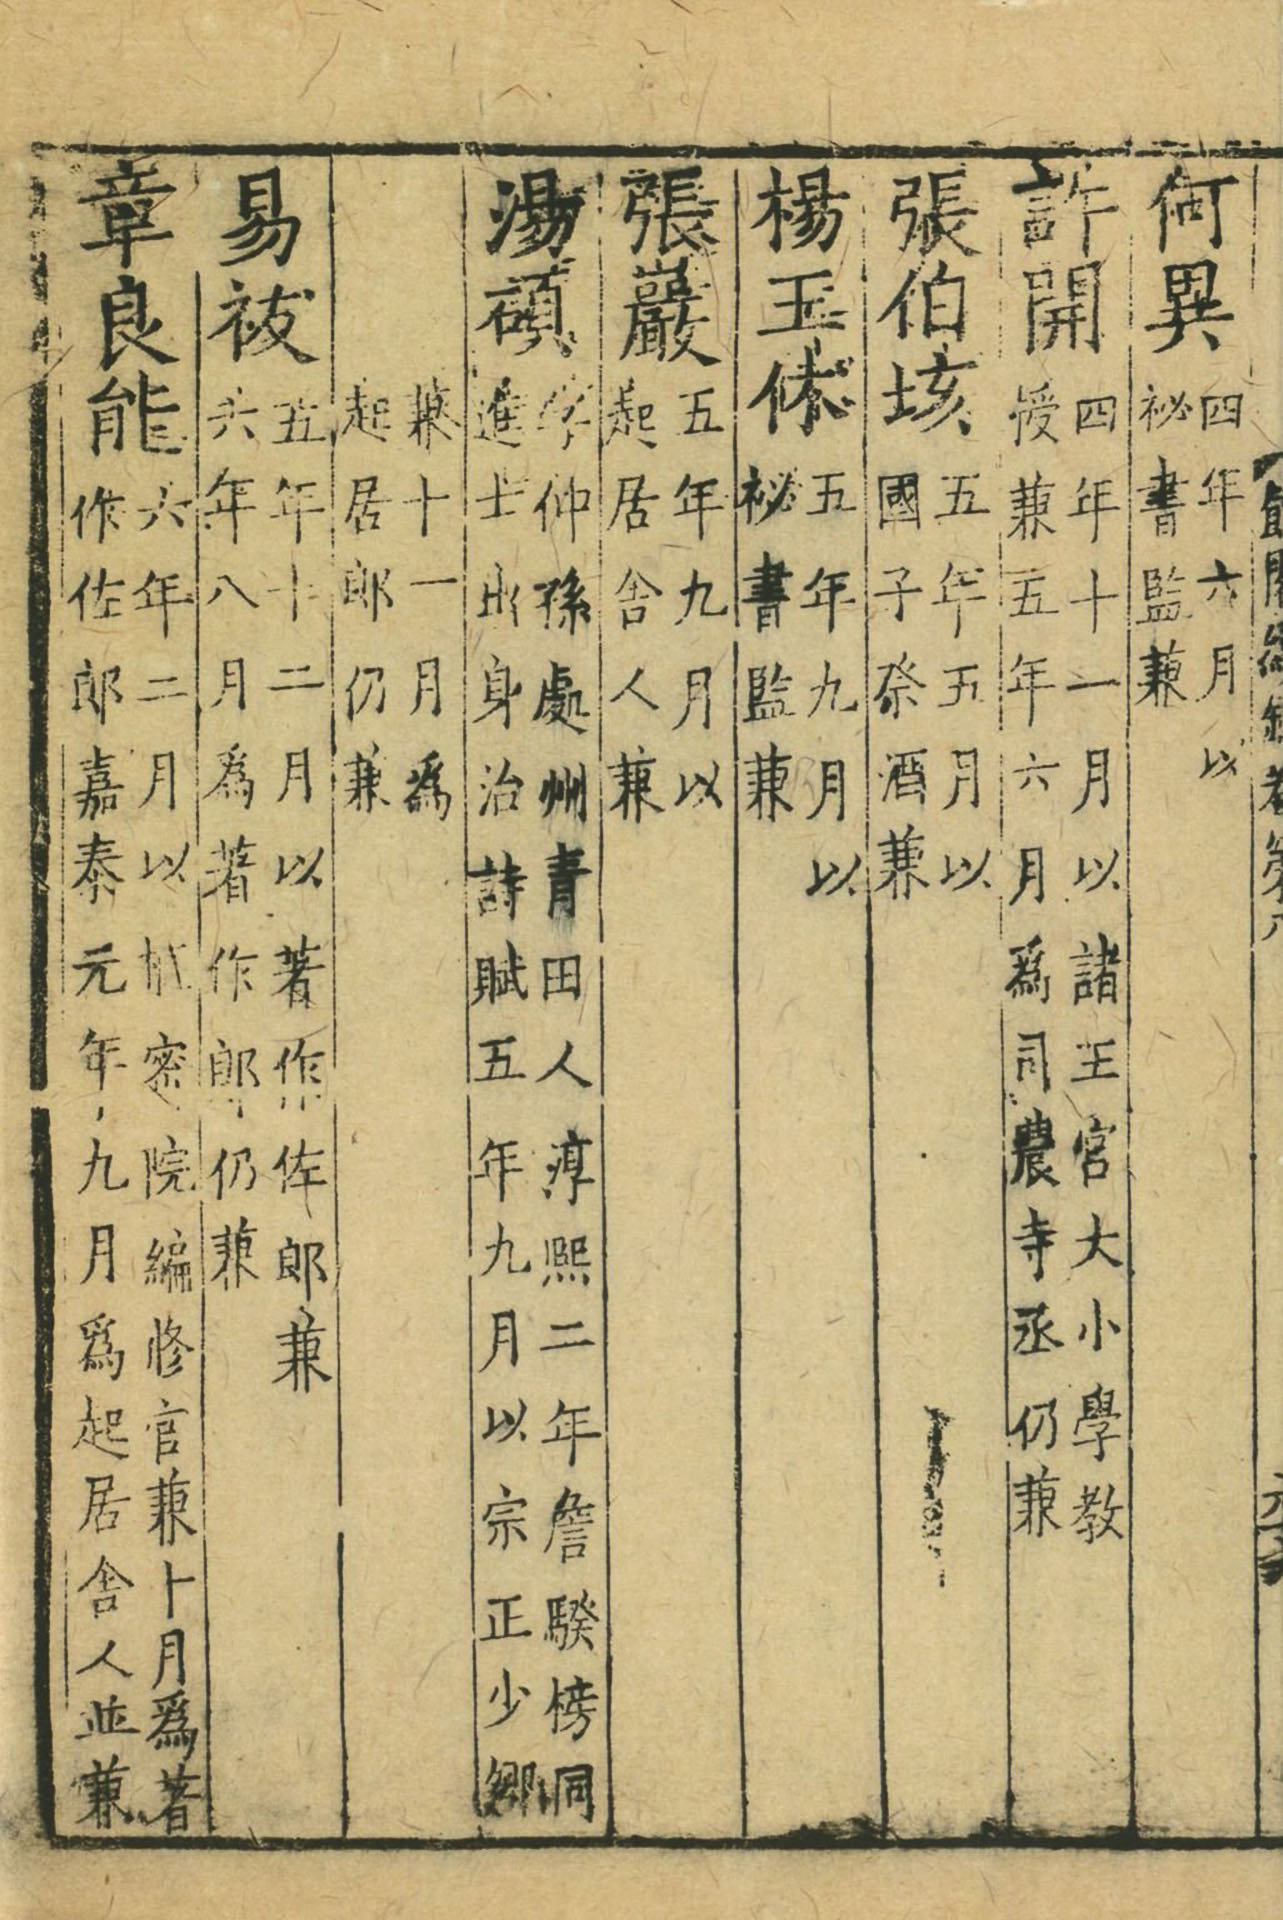 館閣續錄卷第八
何異四年六月以
祕書監兼
許開四年十一月以諸王宮大小學教
授兼五年六月爲司農寺丞仍兼
張伯垓五年五月以
國子祭酒兼
楊王休五年九月以
祕書監兼
張巖五年九月以
起居舍人兼
湯碩字仲孫處州青田人淳熙二年詹騤榜同
進士出身治詩賦五年九月以宗正少卿
兼十一月爲
起居郎仍兼
易祓五年十二月以著作佐郎兼
六年八月爲著作郎仍兼
章良能六年二月以樞密院編修官兼十月爲著
作佐郎嘉泰元年九月爲起居舍人並兼